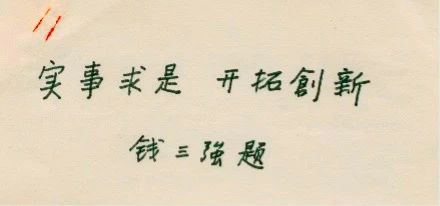 实事求是 开拓創新
钱三強题